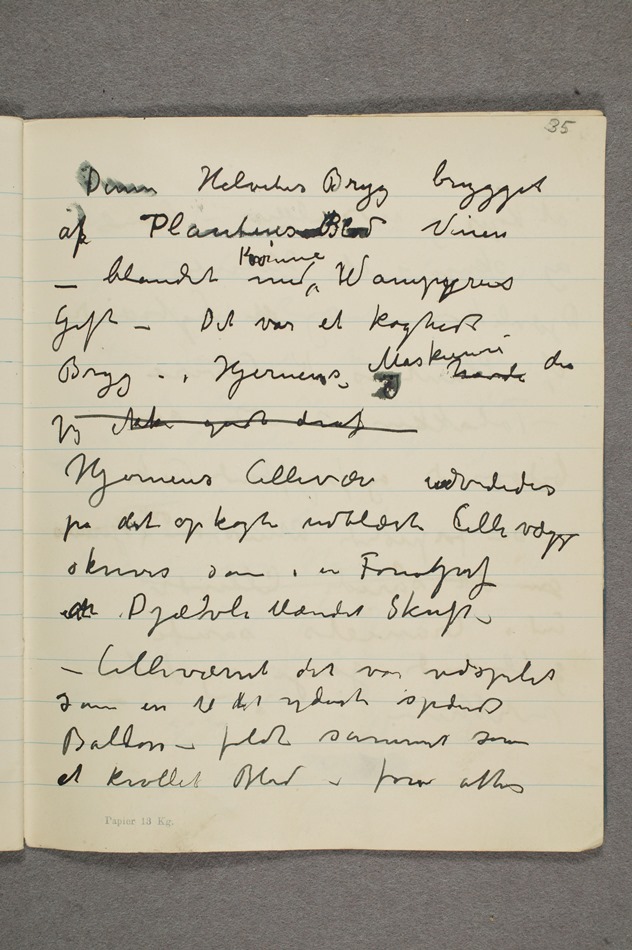 35
Denne Helvetes Bryg brygget
af Plantens Blod Vinen
– blandet med Kvinne Wampyrens
Gift – Det var et koghedt
Bryg i Hjernens Maskineri havde der
jeg ikke godt draf
Hjernens Cellevæv udvidedes
på det opkogte udblæste Cellevægge
skreves som i en Fonograf
Djævleblændet Skrift
– Cellevævet det var udspilet
som en til det yderste spændt
Ballon – faldt sammen som
et krøllet Blad – foran alles
Papier 13 Kg.